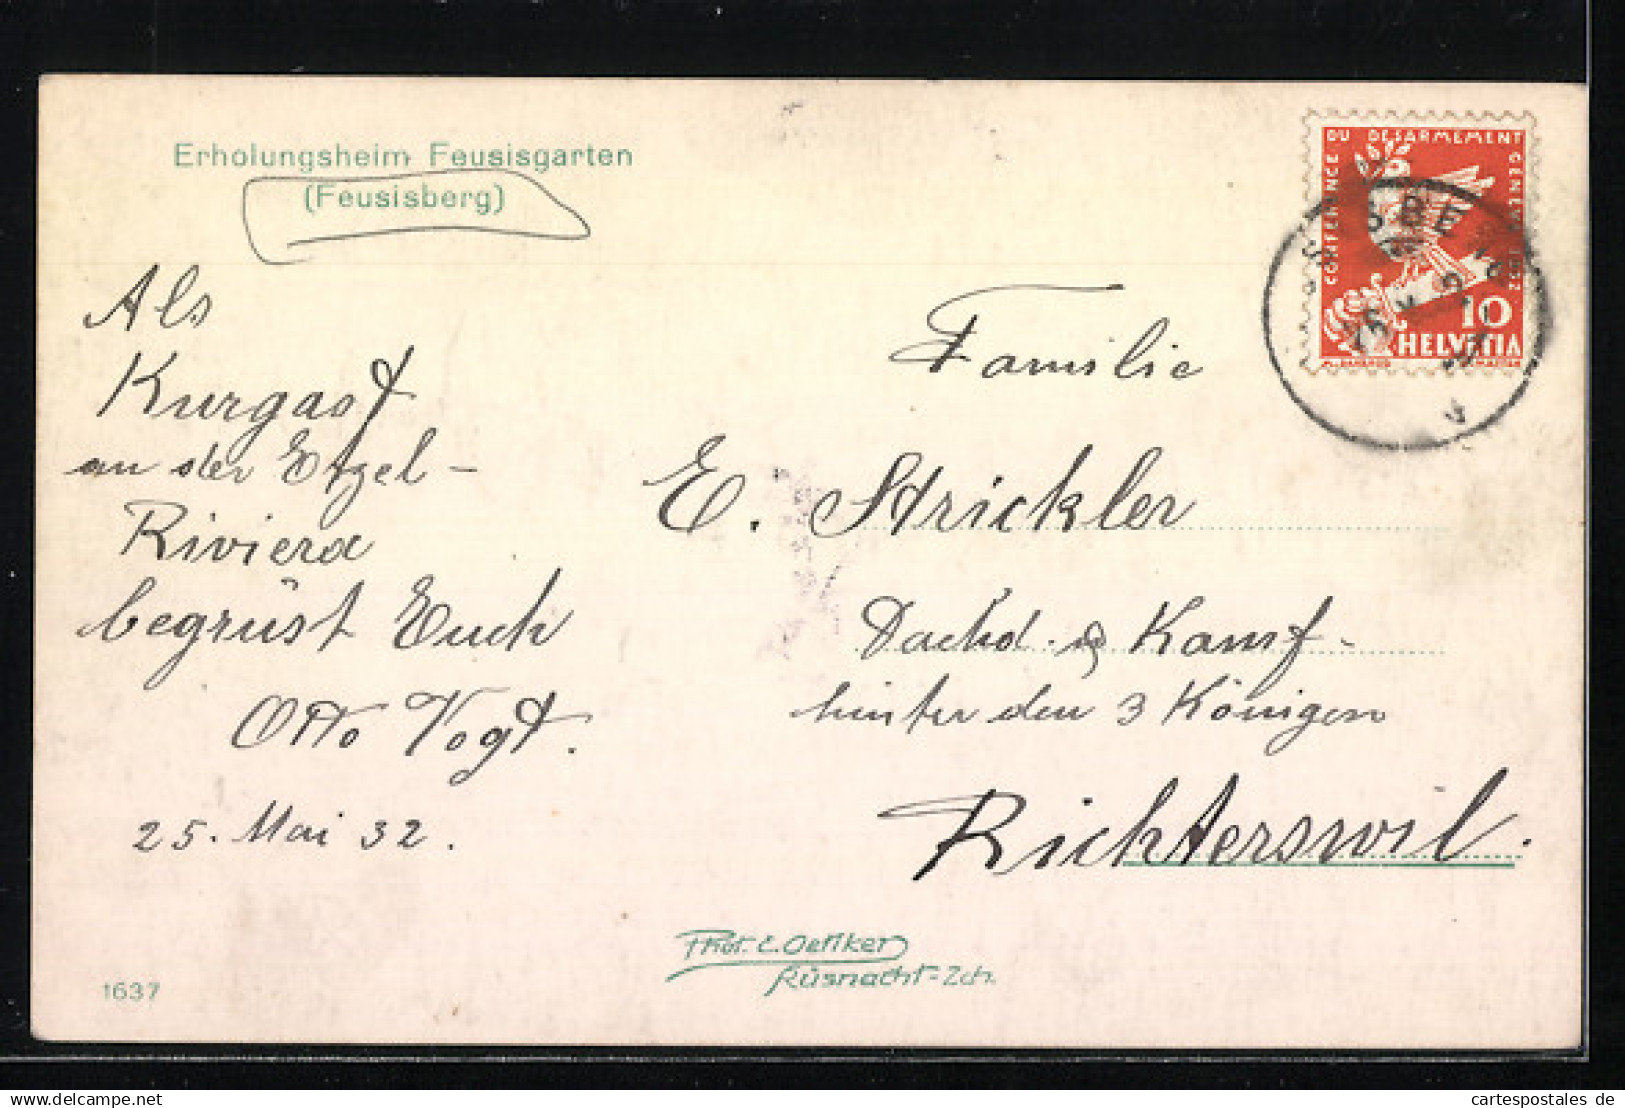 Erholungsheim Feusisgarten
(Feusisberg)
CONFERENCE DU DESARMEMENT GENEVE 1932
10
HELVETIA
Als
Kurgast
an der Etzel-
Riviera
begrüst Euch
Otto Vogt.
25. Mai 32.
Familie
E. Strickler
hinter den 3 Königen
Richterswil.
Phot. E. Oetiker
Küsnacht-Zch.
1637
cartespostales de